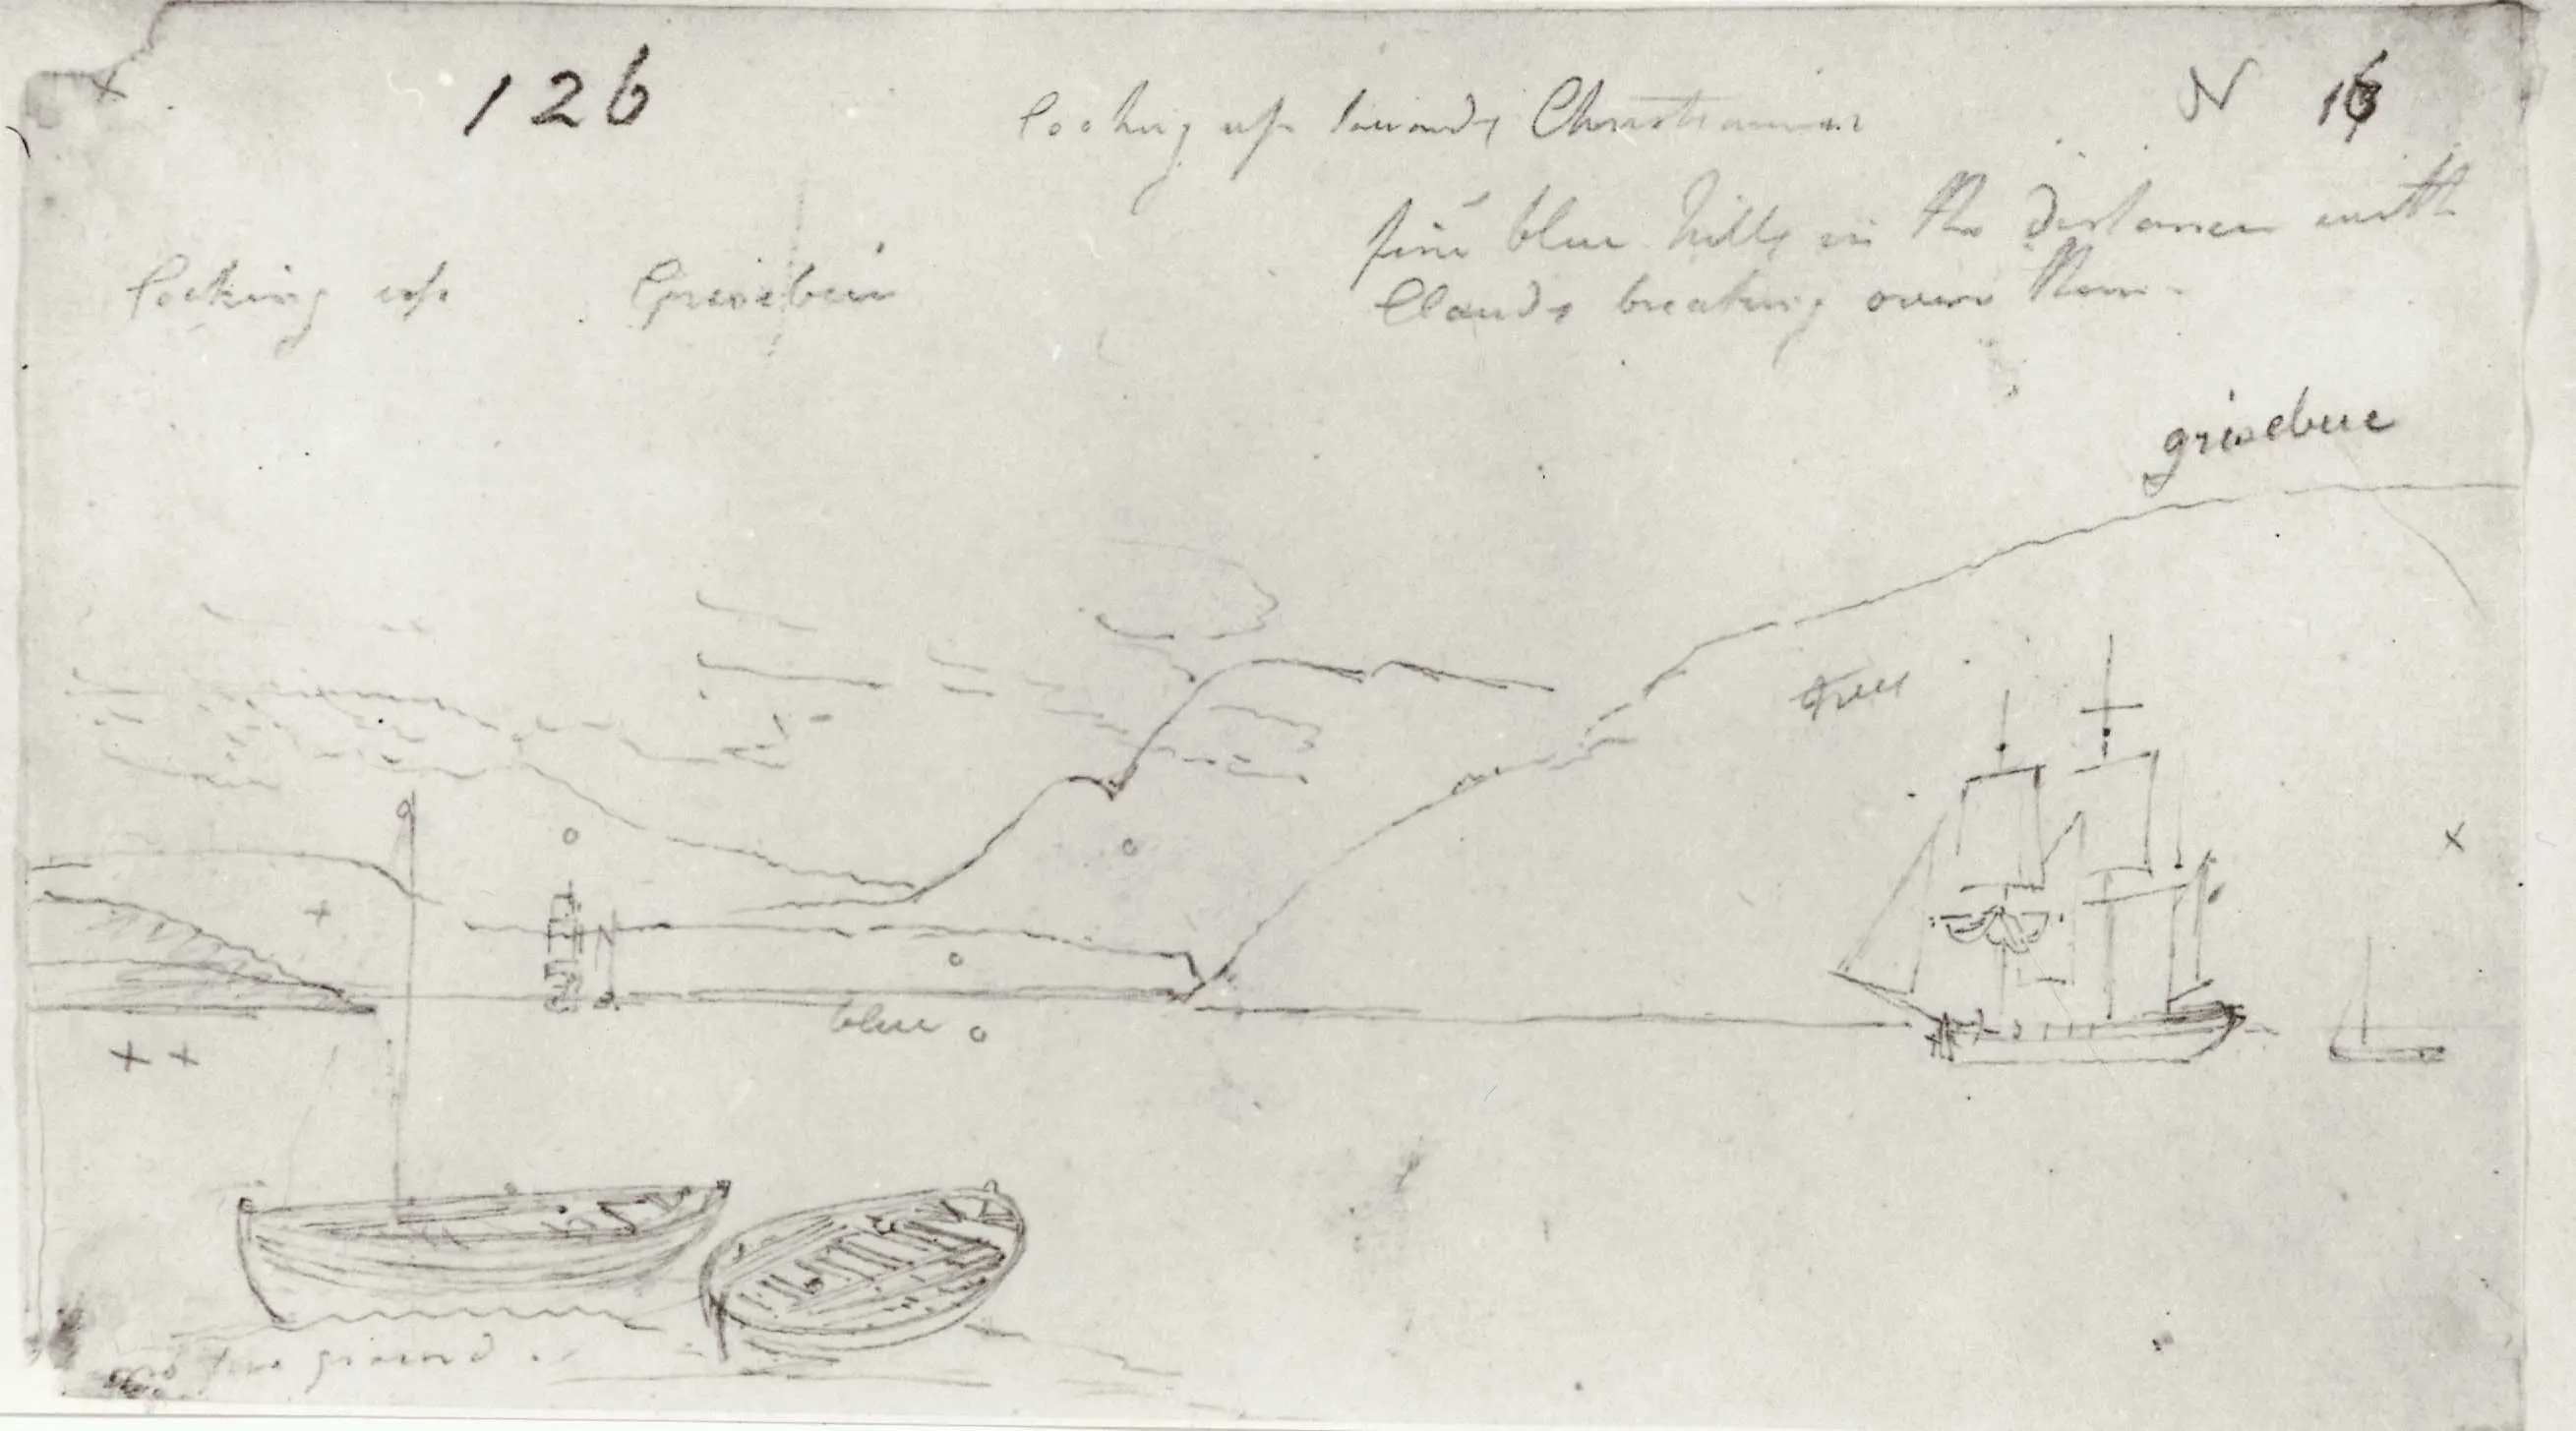 126
looking up towards Christiania
N 16
fine blue hills in the distance with
Clouds breaking over them -
looking up Grisebu
grisebue
blue
fore ground